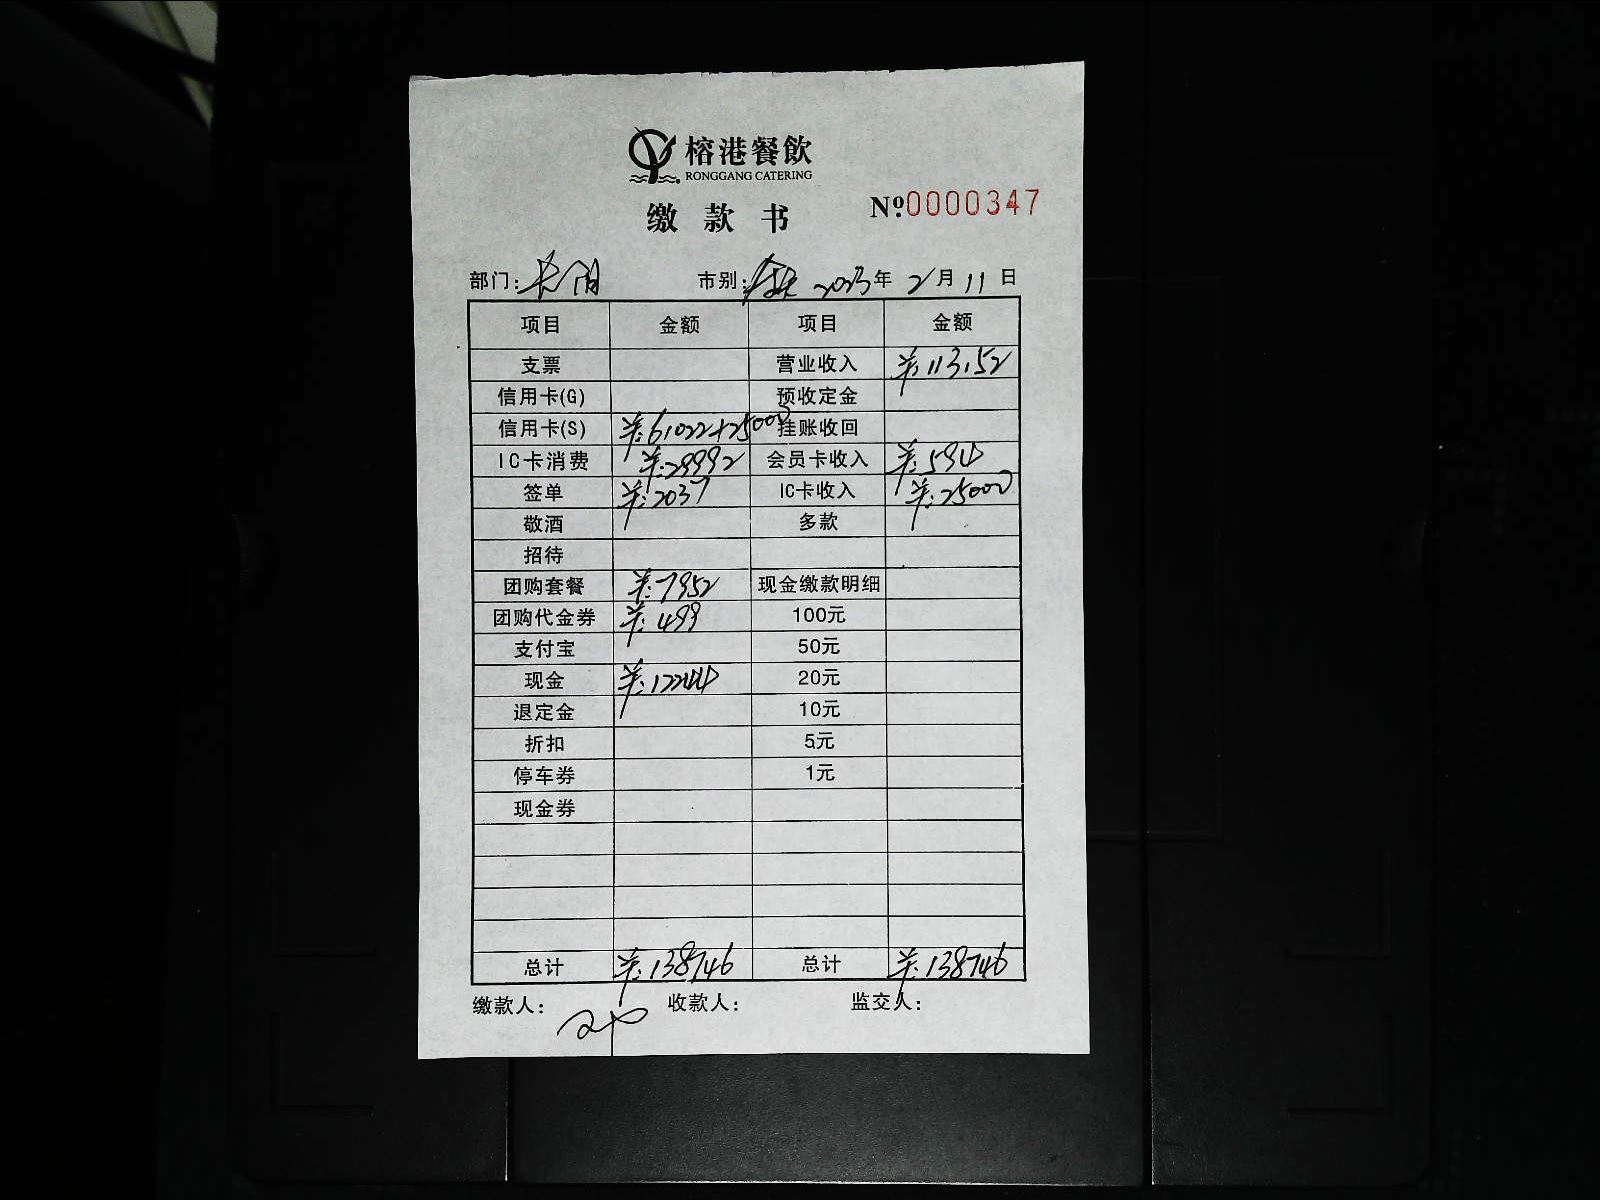 榕港餐飲
RONGGANG CATERING
缴款书
№:0000347
部门: 市别: 2023年2月11日
项目 金额 项目 金额
支票 营业收入 ¥:113152
信用卡(G) 预收定金
信用卡(S) ¥:61022+25000 挂账收回
IC卡消费 ¥:29992 会员卡收入 ¥:594
签单 ¥:2037 IC卡收入 ¥:25000
敬酒 多款
招待
团购套餐 ¥:7952 现金缴款明细
团购代金券 ¥:499 100元
支付宝 50元
现金 ¥:12244 20元
退定金 10元
折扣 5元
停车券 1元
现金券
总计 ¥:138746 总计 ¥:138746
缴款人: 收款人: 监交人: